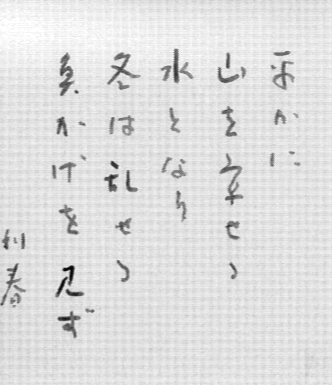 平かに
山を牽せう
水となり
冬は乱せう
魚かげを見ず
春